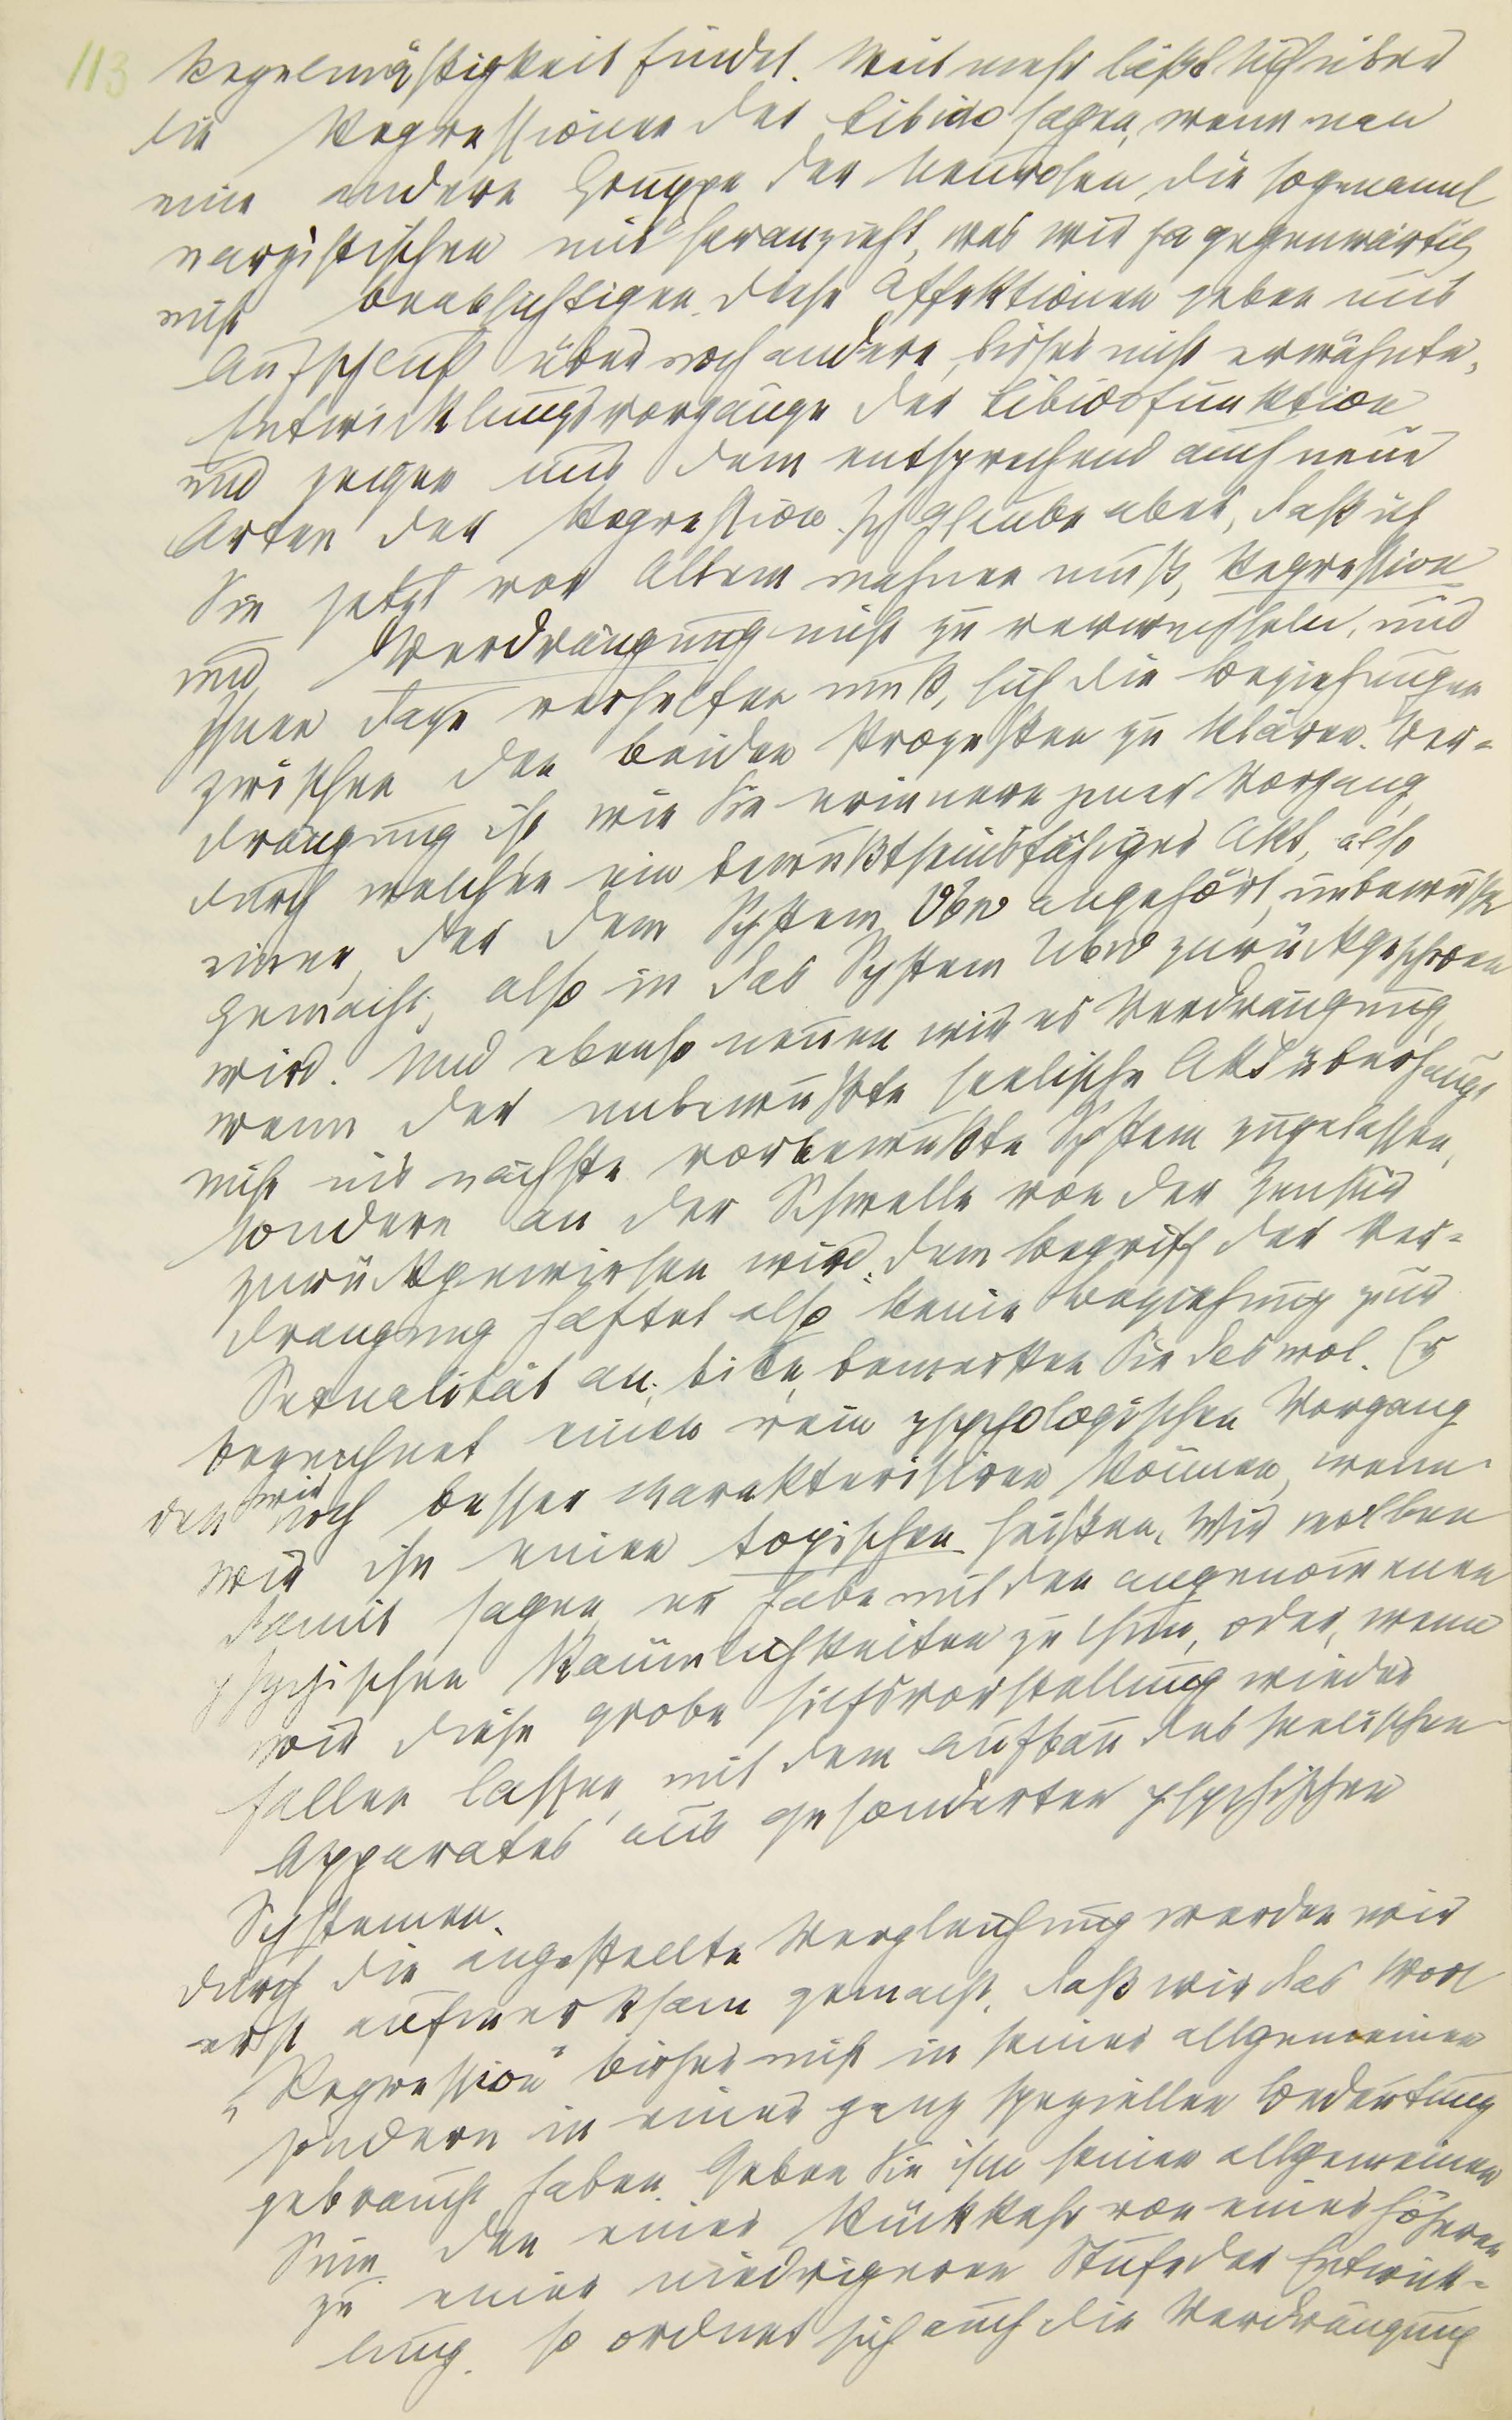 113
Regelmäßigkeit findet. Weit mehr läßt sich über
die Regressionen der Libido sagen, wenn man
eine andere Gruppe der Neurosen, die sogenannt
narzistischen mit heranzieht, was wir ja gegenwärtig
nicht beabsichtigen. Diese Affektionen geben uns
Aufschluß über noch andere, bisher nicht erwähnte,
Entwicklungsvorgänge der Libidofunktion
und zeigen uns dem entsprechend auch neue
Arten der Regression. Ich glaube aber, daß ich
Sie jetzt vor Allem mahnen muß, Regression
und Verdrängung nicht zu verwechseln, und
Ihnen dazu verhelfen muß, sich die Beziehungen
zwischen den beiden Prozessen zu klären. Ver-
drängung ist, wie Sie erinnern, jener Vorgang,
durch welchen ein bewußtseinsfähiger Akt, also
einer, der dem System Vbw angehört, unbewußt
gemacht, also in das System Ubw zurückgeschoben
wird. Und ebenso nennen wir es Verdrängung,
wenn der unbewußte seelische Akt überhaupt
nicht ins nächste vorbewußte System zugelassen,
sondern an der Schwelle von der Zensur
zurückgewiesen wird. Dem Begriff der Ver-
drangung haftet also keine Beziehung zur
Sexualität an; bitte, bemerken Sie das wol. Er
bezeichnet einen rein psychologischen Vorgang
den wir noch besser charakterisiren können, wenn
wir ihn einen topischen heißen. Wir wollen
damit sagen, er habe mit den angenommenen
psychischen Räumlichkeiten zu thun, oder, wenn
wir diese grobe Hilfsvorstellung wieder
fallen lassen, mit dem Aufbau des seelischen
Apparates aus gesonderten psychischen
Systemen.
Durch die angestellte Vergleichung werden wir
erst aufmerksam gemacht, daß wir das Wort
„Regression“ bisher nicht in seiner allgemeinen
sondern in einer ganz speziellen Bedeutung
gebraucht haben. Geben Sie ihm seinen allgemeinen
Sinn den einer Rückkehr von einer höheren
zu einer niedrigeren Stufe der Entwick-
lung, so ordnet sich auch die Verdrängung